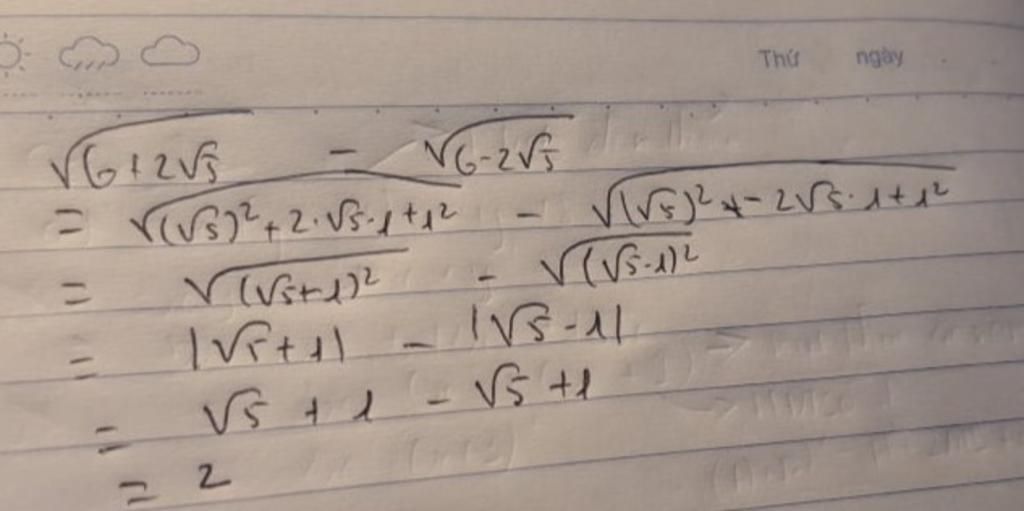 Thứ ngày
√(6+2√5) - √(6-2√5)
= √((√5)²+2·√5·1+1²) - √((√5)²-2√5·1+1²)
= √((√5+1)²) - √((√5-1)²)
= |√5+1| - |√5-1|
= √5 + 1 - √5 + 1
= 2